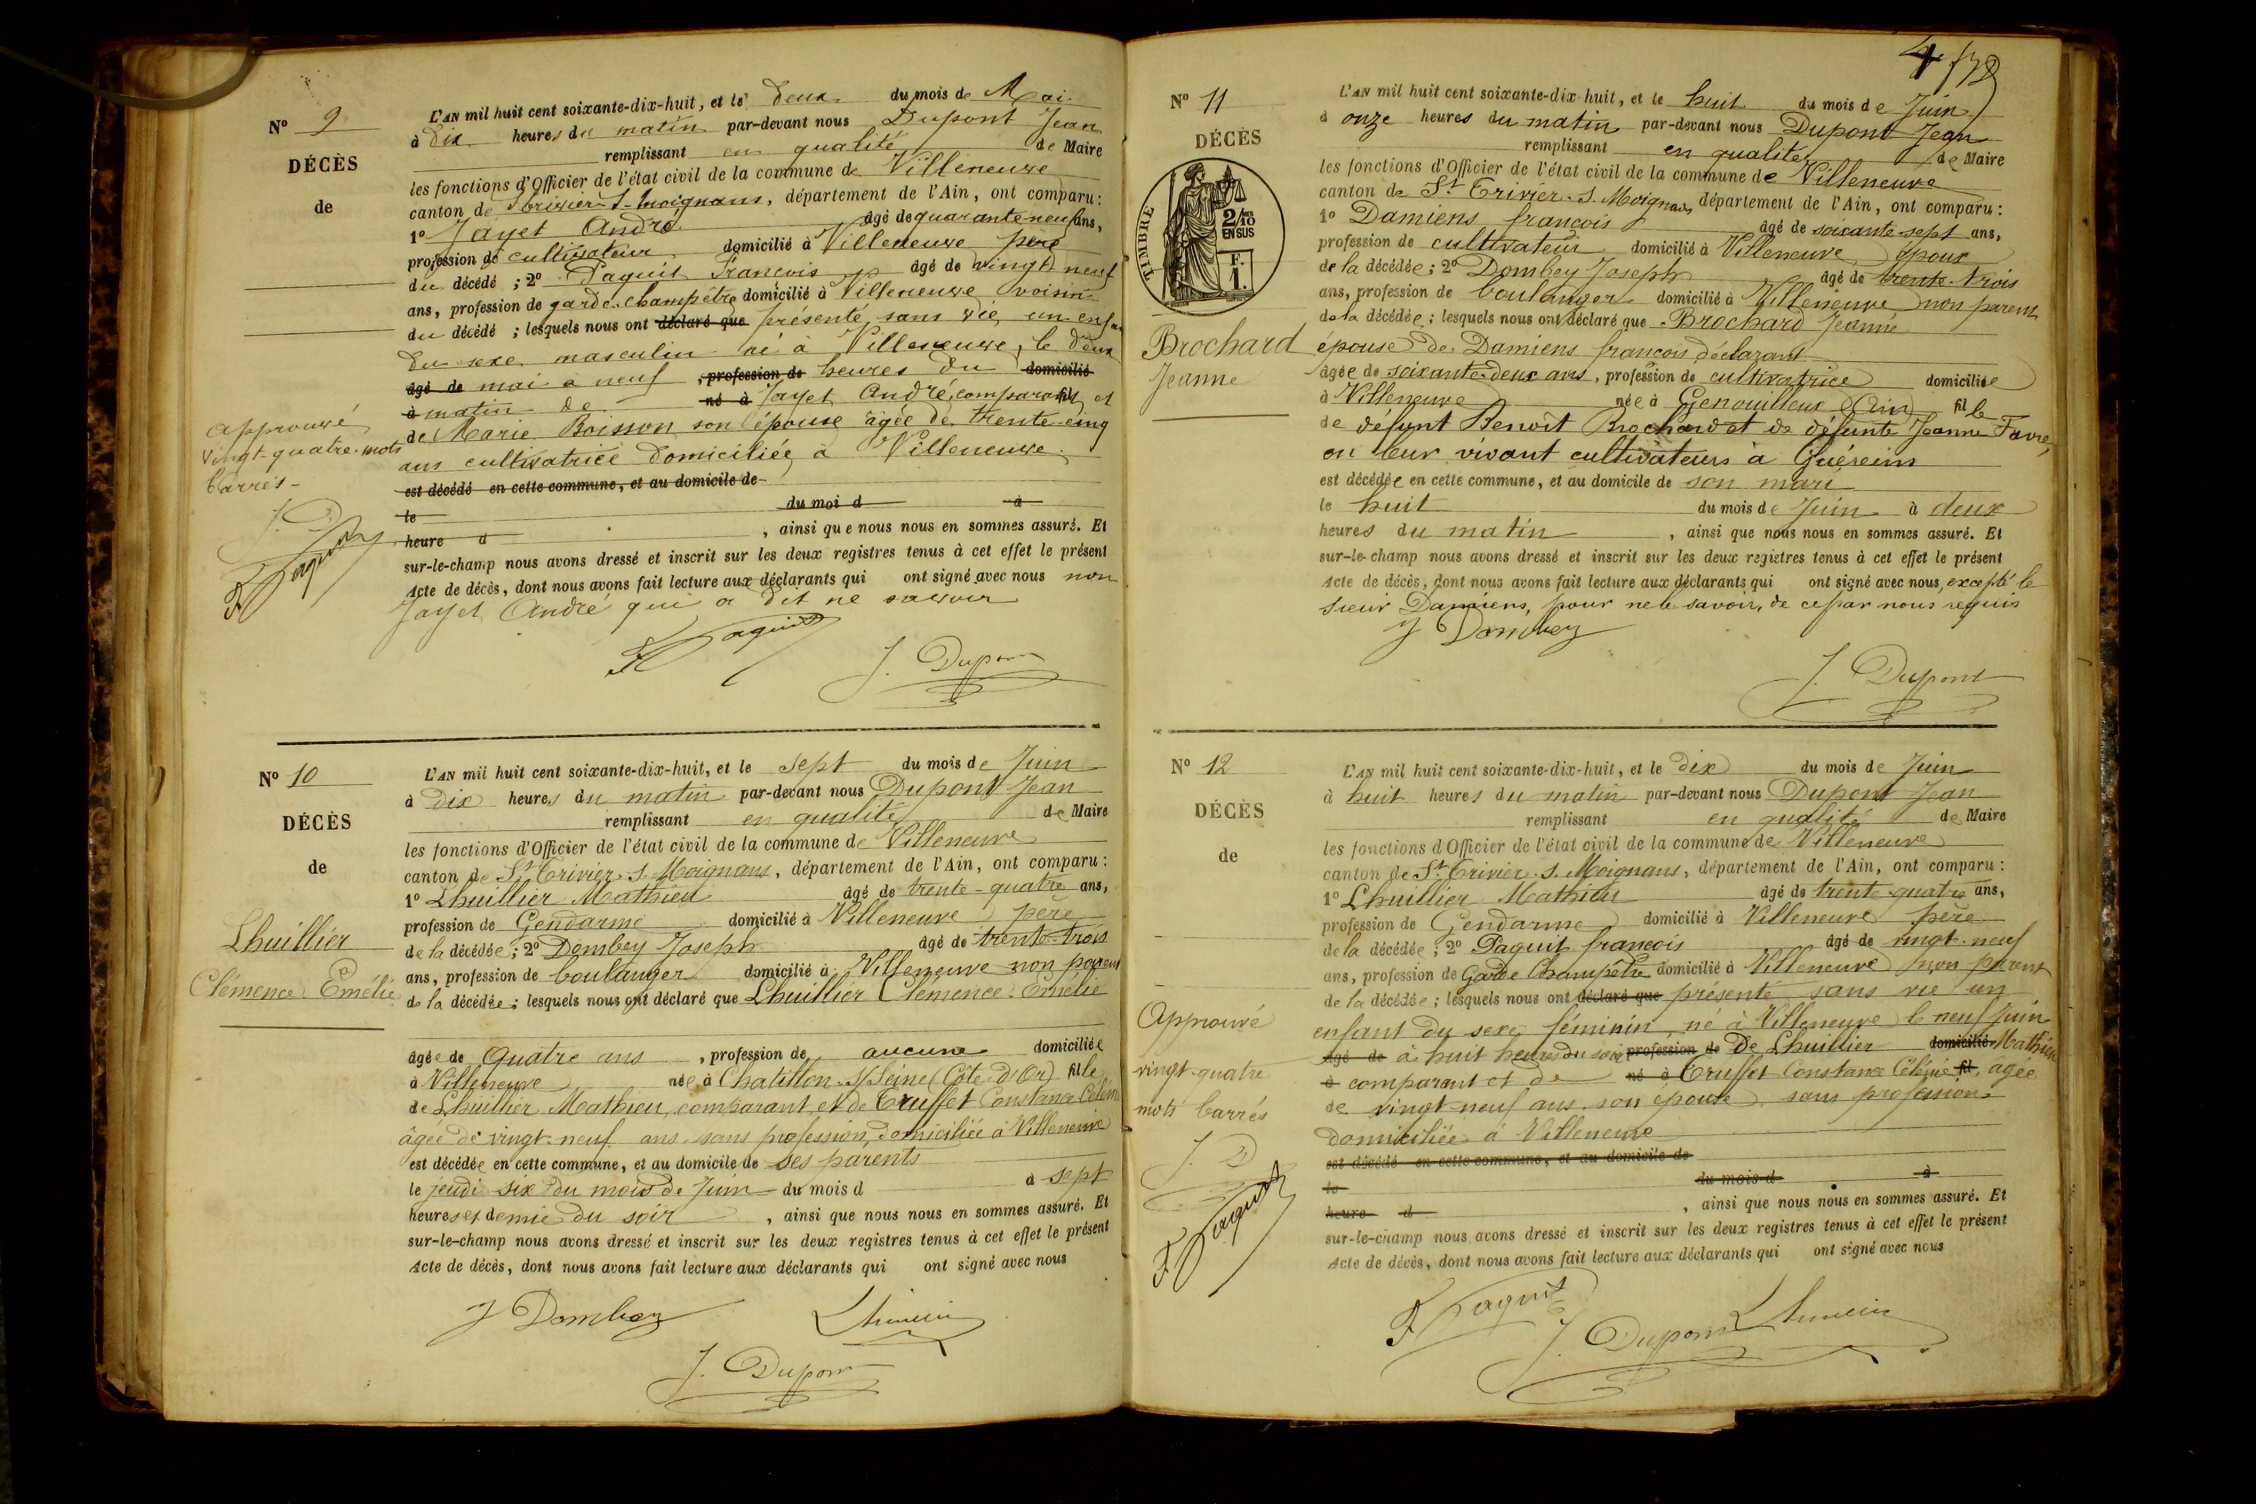 Nº 9
DÉCÈS
de
L'AN mil huit cent soixante-dix-huit, et le deux du mois de Mai
à dix heures du matin par-devant nous Dupont Jean
remplissant en qualité de Maire
les fonctions d'Officier de l'état civil de la commune de Villeneuve
canton de St Trivier s. Moignans, département de l'Ain, ont comparu :
1º Jayet André âgé de quarante-neuf ans,
profession de cultivateur domicilié à Villeneuve père
du décédé ; 2º Paquit François âgé de vingt neuf
ans, profession de garde-champêtre domicilié à Villeneuve voisin
du décédé ; lesquels nous ont déclaré que présenté sans vie un enfan
du sexe masculin né à Villeneuve, le deux
âgé de mai à neuf , profession de heures du domicilié
à matin de né à Jayet André, comparant fil et
de Marie Boisson son épouse âgée de trente-cinq
ans cultivatrice domiciliée à Villeneuve
est décédé en cette commune, et au domicile de
le du moi d à
heure d , ainsi que nous nous en sommes assuré. Et
sur-le-champ nous avons dressé et inscrit sur les deux registres tenus à cet effet le présent
Acte de décès, dont nous avons fait lecture aux déclarants qui ont signé avec nous non
Jayet André qui a dit ne savoir
approuvé
vingt-quatre mots
barrés
J. D
F Paquit
F Paquit
J. Dupont
Nº 10
DÉCÈS
de
Lhuillier
Clémence Emélie
L'AN mil huit cent soixante-dix-huit, et le sept du mois de Juin
à dix heures du matin par-devant nous Dupont Jean
remplissant en qualité de Maire
les fonctions d'Officier de l'état civil de la commune de Villeneuve
canton de St Trivier s. Moignans, département de l'Ain, ont comparu :
1º Lhuillier Mathieu âgé de trente-quatre ans,
profession de Gendarme domicilié à Villeneuve père
de la décédée ; 2º Dombey Joseph âgé de trente-trois
ans, profession de boulanger domicilié à Villeneuve non parent
de la décédée ; lesquels nous ont déclaré que Lhuillier Clémence Emélie
âgée de Quatre ans , profession de aucune domiciliée
à Villeneuve née à Chatillon s/Seine (Côte d'Or) fille
de Lhuillier Mathieu, comparant, et de Truffet Constance Célénie
âgée de vingt-neuf ans sans profession, domiciliée à Villeneuve
est décédée en cette commune, et au domicile de ses parents
le jeudi six du mois de Juin du mois d à sept
heures et demie du soir , ainsi que nous nous en sommes assuré. Et
sur-le-champ nous avons dressé et inscrit sur les deux registres tenus à cet effet le présent
Acte de décès, dont nous avons fait lecture aux déclarants qui ont signé avec nous
J Dombey
Lhuillier
J. Dupont
4
Nº 11
DÉCÈS
TIMBRE
2/10
EN SUS
F.
1.
Brochard
Jeanne
L'AN mil huit cent soixante-dix-huit, et le huit du mois de Juin
à onze heures du matin par-devant nous Dupont Jean
remplissant en qualité de Maire
les fonctions d'Officier de l'état civil de la commune de Villeneuve
canton de St Trivier s. Moignans département de l'Ain, ont comparu :
1º Damiens françois âgé de soixante-sept ans,
profession de cultivateur domicilié à Villeneuve époux
de la décédée ; 2º Dombey Joseph âgé de trente-trois
ans, profession de boulanger domicilié à Villeneuve non parent
de la décédée ; lesquels nous ont déclaré que Brochard Jeanne
épouse de Damiens françois déclarant
âgée de soixante-deux ans , profession de cultivatrice domiciliée
à Villeneuve née à Genouilleux (Ain) fille
de défunt Benoît Brochard et de défunte Jeanne Favre,
en leur vivant cultivateurs à Guéreins
est décédée en cette commune, et au domicile de son mari
le huit du mois de Juin à deux
heures du matin , ainsi que nous nous en sommes assuré. Et
sur-le-champ nous avons dressé et inscrit sur les deux registres tenus à cet effet le présent
Acte de décès, dont nous avons fait lecture aux déclarants qui ont signé avec nous, excepté le
sieur Damiens, pour ne le savoir, de ce par nous requis
J Dombey
J. Dupont
Nº 12
DÉCÈS
de
L'AN mil huit cent soixante-dix-huit, et le dix du mois de Juin
à huit heures du matin par-devant nous Dupont Jean
remplissant en qualité de Maire
les fonctions d'Officier de l'état civil de la commune de Villeneuve
canton de St Trivier s. Moignans, département de l'Ain, ont comparu :
1º Lhuillier Mathieu âgé de trente-quatre ans,
profession de Gendarme domicilié à Villeneuve père
de la décédée ; 2º Paquit françois âgé de vingt-neuf
ans, profession de Garde Champêtre domicilié à Villeneuve non parent
de la décédée ; lesquels nous ont déclaré que présenté sans vie un
enfant du sexe féminin, né à Villeneuve le neuf Juin
âgé de à huit heures du soir profession de De Lhuillier domicilié Mathieu
à comparant et de né à Truffet Constance Célénie fil, âgée
de vingt-neuf ans son épouse sans profession
domiciliée à Villeneuve
est décédé en cette commune, et au domicile de
le du mois d à
heure d , ainsi que nous nous en sommes assuré. Et
sur-le-champ nous avons dressé et inscrit sur les deux registres tenus à cet effet le présent
Acte de décès, dont nous avons fait lecture aux déclarants qui ont signé avec nous
Approuvé
vingt-quatre
mots barrés
J. D
F Paquit
F Paquit
J. Dupont
Lhuillier